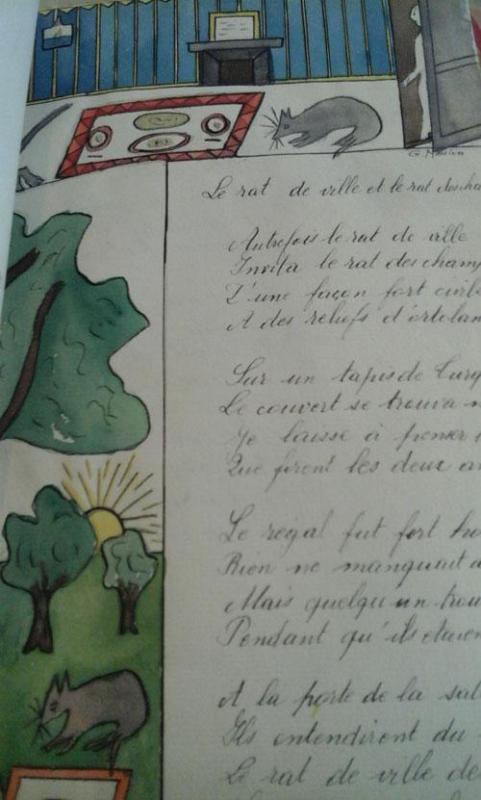 Le rat de ville et le rat des cha
Autrefois le rat de ville
Invita le rat des champ
D'une façon fort civil
A des reliefs d'ortolan
Sur un tapis de Turq
Le couvert se trouva m
Je laisse à penser
Que firent les deux am
Le régal fut fort ho
Rien ne manquait a
Mais quelqu'un trou
Pendant qu'ils étaien
A la porte de la sal
Ils entendirent du
Le rat de ville de